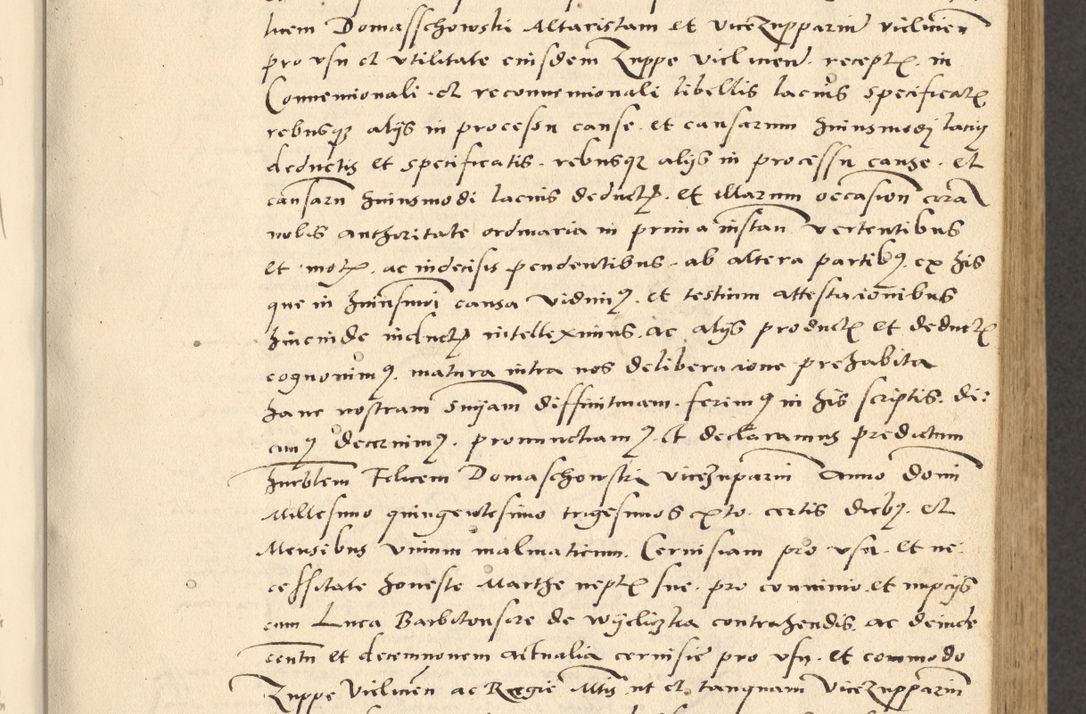 licem Domasschowski Altaristam et vicezupparium vieliciens
pro usu et utilitate eiusdem Zuppe vielicien. recept. in
Conventionali et reconventionali libellis lacius specificat.
rebusq; aliis in processu cause et causarum huiusmodi latius
deductis et specificatis. rebusq; aliis in processu cause et
causaru huiusmodi lacius deduct. et illarum occasion cora
nobis authoritate ordinaria in prima instan vertentibus
et mot. ac indecisis pendentibus ab altera partib; ex his
que in huiusmoi causa vidimus et testium attestacionibus
hincinde induct. intelleximus. ac aliis product. et deduct.
cognovimus. matura intra nos deliberacione prehabita
hanc nostram sniam diffinitivam ferimus in his scriptis. di:
cimus decernimus. pronunctiamus. et declaramus predictum
hurblem Felicem Domaschowski vicezuparium Anno domi
Millesimo quingentesimo trigesimo sexto. certis dieb; et
Mensibus vinum malmaticum. Cervisiam pro usu et ne
cessitate honeste Marthe nept. sue. pro convivio et nupciis
cum Luca Barbitonsore de Wyeliczka contrahendis. ac deinde
centu et decemnovem actualia cervisie pro usu. et commodo
Zuppe Vielicien ac Regie Mtis ut et tanquam Vicezupparium